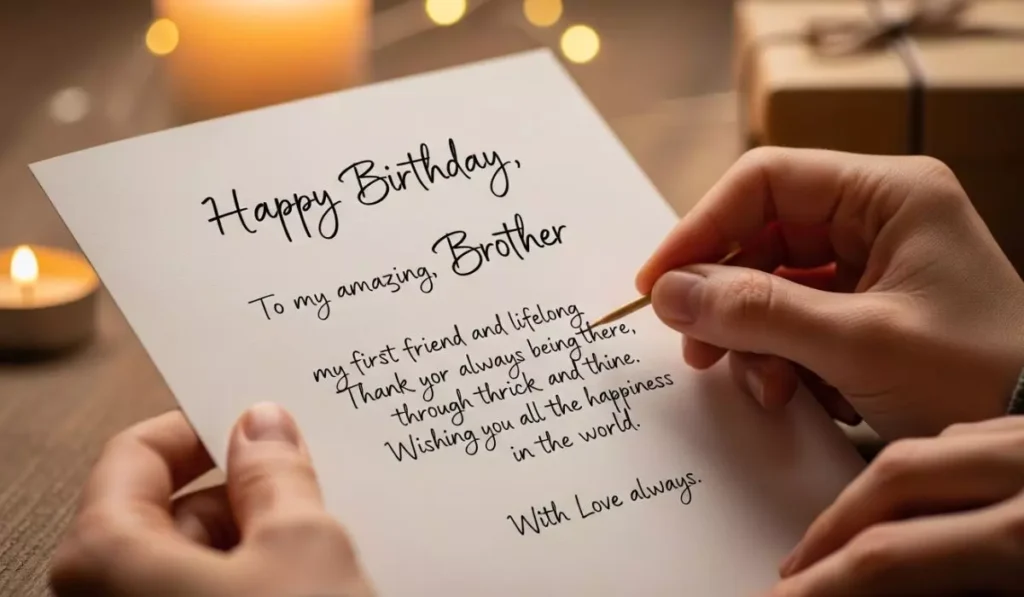 Happy Birthday,
To my amazing, Brother
my first friend and lifelong
Thank yor always being there,
through thrick and thine.
Wishing you all the happiness
in the world.
With Love always.